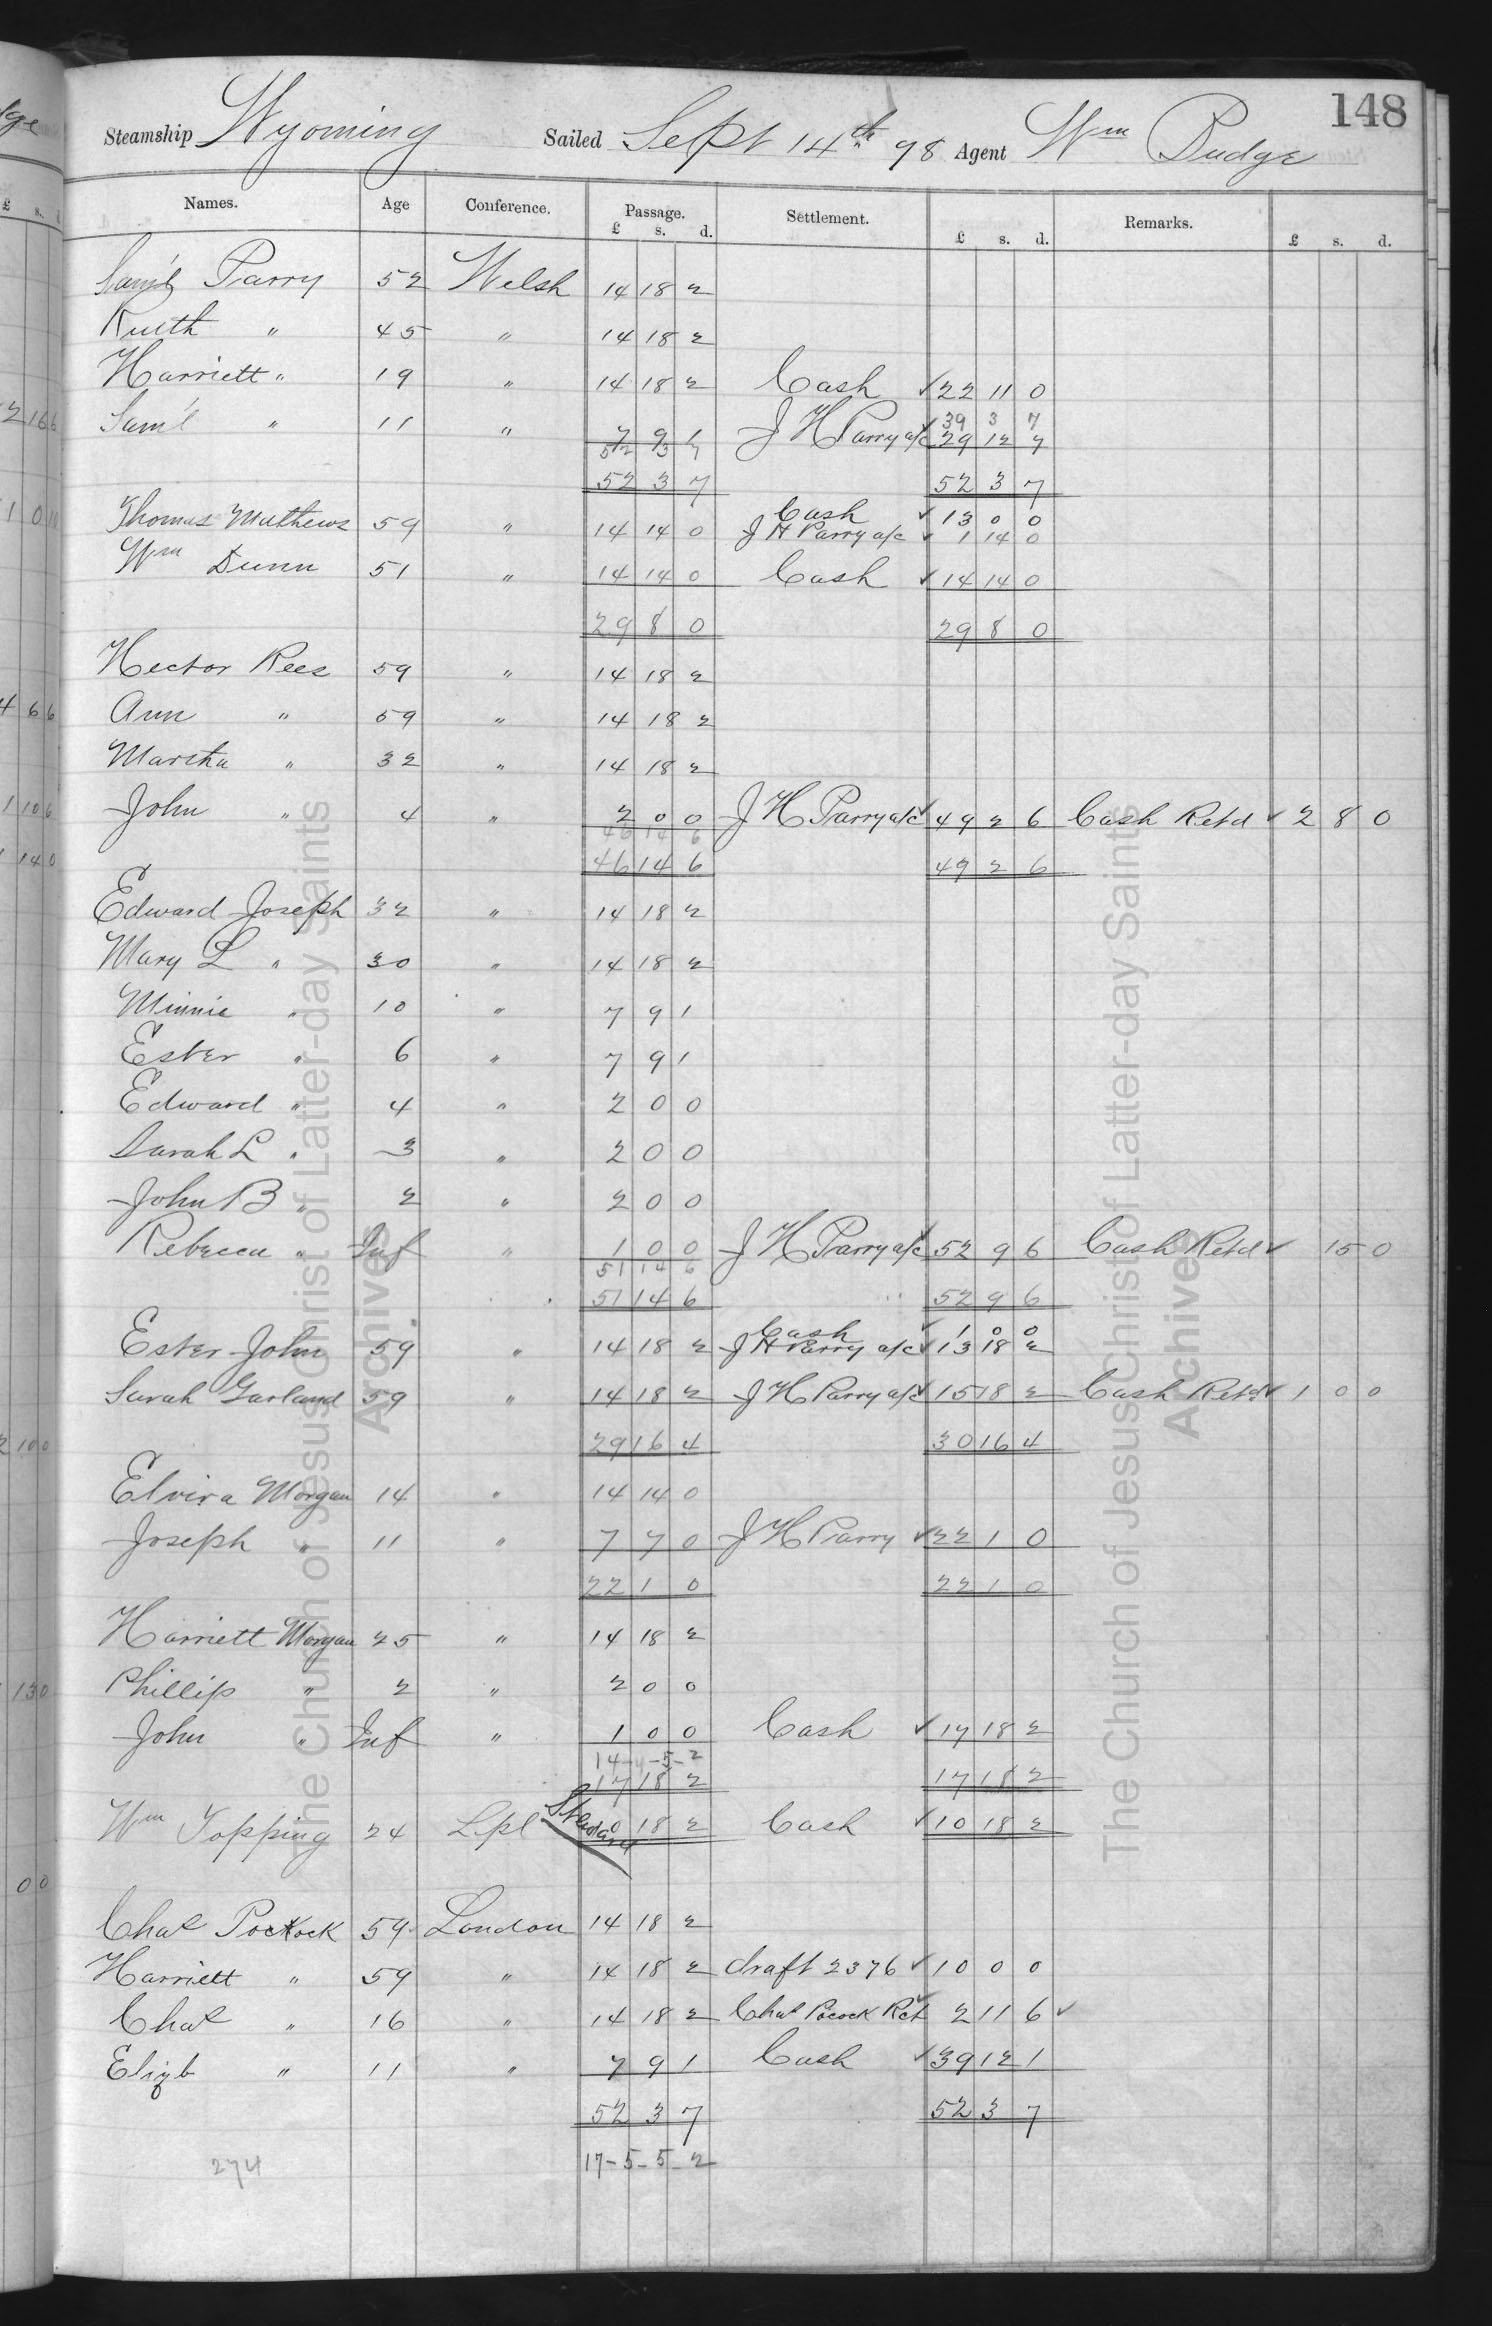 148
Steamship Wyoming Sailed Sept 14th 98 Agent Wm Budge
Names. Age Conference. Passage. Settlement. Remarks.
£ s. d. £ s. d. £ s. d.
Saml Parry 52 Welsh 14 18 2
Ruth " 45 " 14 18 2
Harriett " 19 " 14 18 2 Cash ✓ 22 11 0
39 3 7
Saml " 11 " 7 9 1 J H Parry a/c ✓ 29 12 7
52 3 7
52 3 7 52 3 7
Cash ✓ 13 0 0
Thomas Mathews 59 " 14 14 0 J H Parry a/c ✓ 1 14 0
Wm Dunn 51 " 14 14 0 Cash ✓ 14 14 0
29 8 0 29 8 0
Hector Rees 59 " 14 18 2
Ann " 59 " 14 18 2
Martha " 32 " 14 18 2
John " 4 " 2 0 0 J H Parry a/c ✓ 49 2 6 Cash Retd ✓ 2 8 0
46 14 6
46 14 6 49 2 6
Edward Joseph 32 " 14 18 2
Mary L " 30 " 14 18 2
Minnie " 10 " 7 9 1
Ester " 6 " 7 9 1
Edward " 4 " 2 0 0
Sarah L " 3 " 2 0 0
John B " 2 " 2 0 0
Rebecca " Inf " 1 0 0 J H Parry a/c ✓ 52 9 6 Cash Retd ✓ 15 0
51 14 6
51 14 6 52 9 6
Cash ✓ 1 0 0
Ester John 59 " 14 18 2 J H Parry a/c ✓ 13 18 2
Sarah Garland 59 " 14 18 2 J H Parry a/c ✓ 15 18 2 Cash Retd ✓ 1 0 0
29 16 4 30 16 4
Elvira Morgan 14 " 14 14 0
Joseph " 11 " 7 7 0 J H Parry ✓ 22 1 0
22 1 0 22 1 0
Harriett Morgan 25 " 14 18 2
Phillip " 2 " 2 0 0
John " Inf " 1 0 0 Cash ✓ 17 18 2
14-4-5-2
17 18 2 17 18 2
Wm Topping 24 Lpl 10 18 2 Cash ✓ 10 18 2
Chas Pocock 59 London 14 18 2
Harriett " 59 " 14 18 2 draft 2376 ✓ 10 0 0
Chas " 16 " 14 18 2 Chas Pocock Ret ✓ 2 11 6 ✓
Elizb " 11 " 7 9 1 Cash ✓ 39 12 1
52 3 7 52 3 7
17-5-5-2
274
The Church of Jesus Christ of Latter-day Saints
Archives
The Church of Jesus Christ of Latter-day Saints
Archives